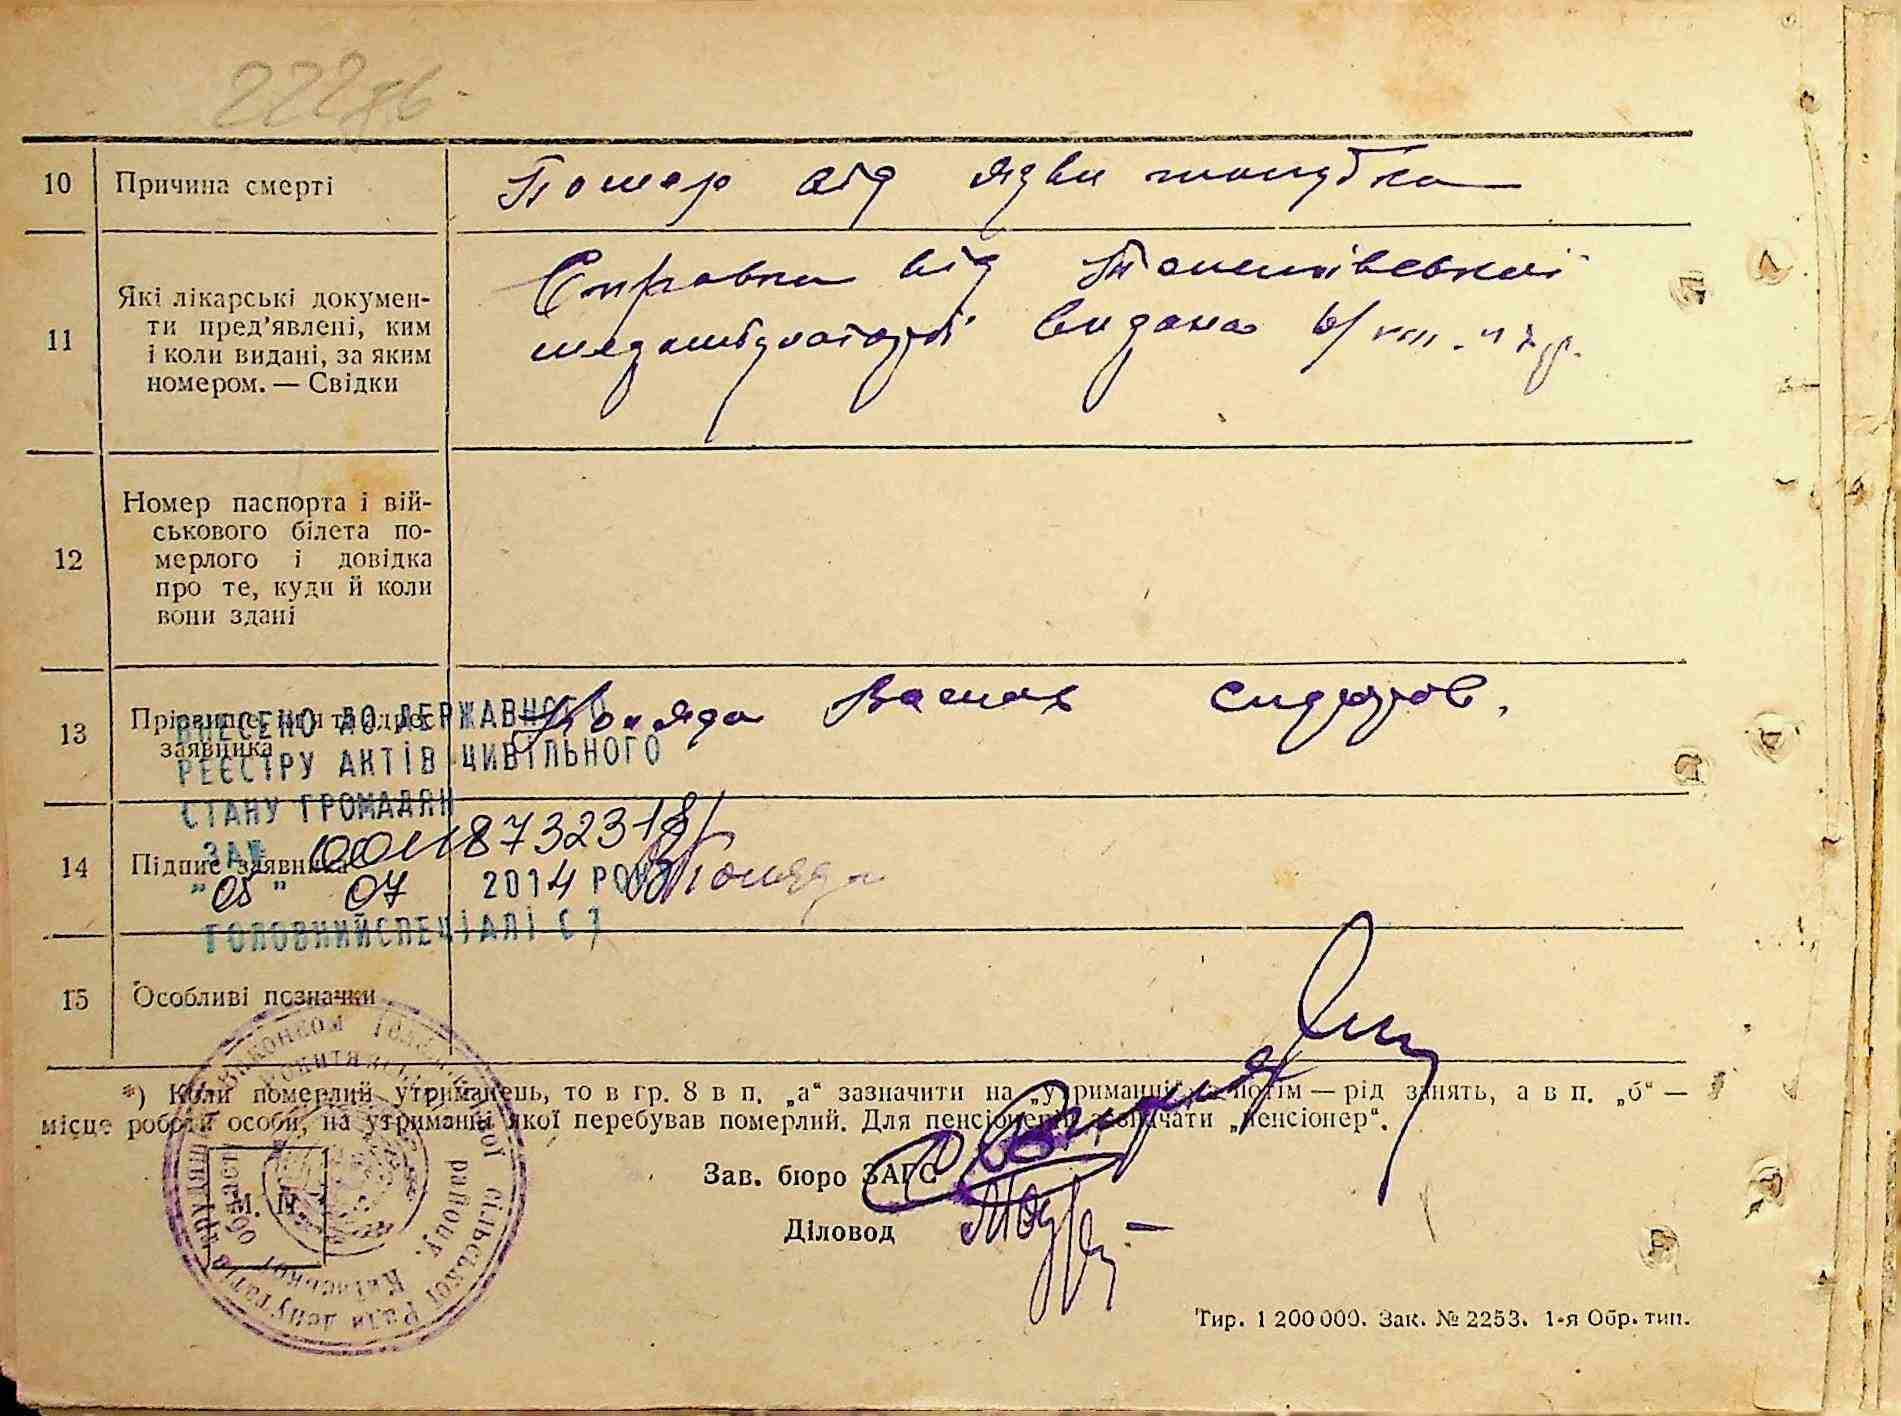 222 зв.
10 Причина смерті
Помер від язви шлудка
11 Які лікарські докумен-
ти пред'явлені, ким
і коли видані, за яким
номером. — Свідки
Справка від
видана 6/VIII
12 Номер паспорта і вій-
ськового білета по-
мерлого і довідка
про те, куди й коли
вони здані
13 Прізвище, ім'я та адрес
заявника
Василь Сидоров.
ВНЕСЕНО ДО ДЕРЖАВНОГО
РЕЄСТРУ АКТІВ ЦИВІЛЬНОГО
СТАНУ ГРОМАДЯН
ЗА № 00118732318
14 Підпис заявника
"05" 07 2014 РОКУ
ГОЛОВНИЙ СПЕЦІАЛІСТ
15 Особливі позначки
*) Коли померлий утриманець, то в гр. 8 в п. „а“ зазначити на „утриманні“, а потім — рід занять, а в п. „б“ —
місце роботи особи, на утриманні якої перебував померлий. Для пенсіонерів зазначати „пенсіонер“.
Зав. бюро ЗАГС
М. П.
Діловод
сільської Ради депутатів трудящих
району, Київської області
Тир. 1 200 000. Зак. № 2253. 1-я Обр. тип.